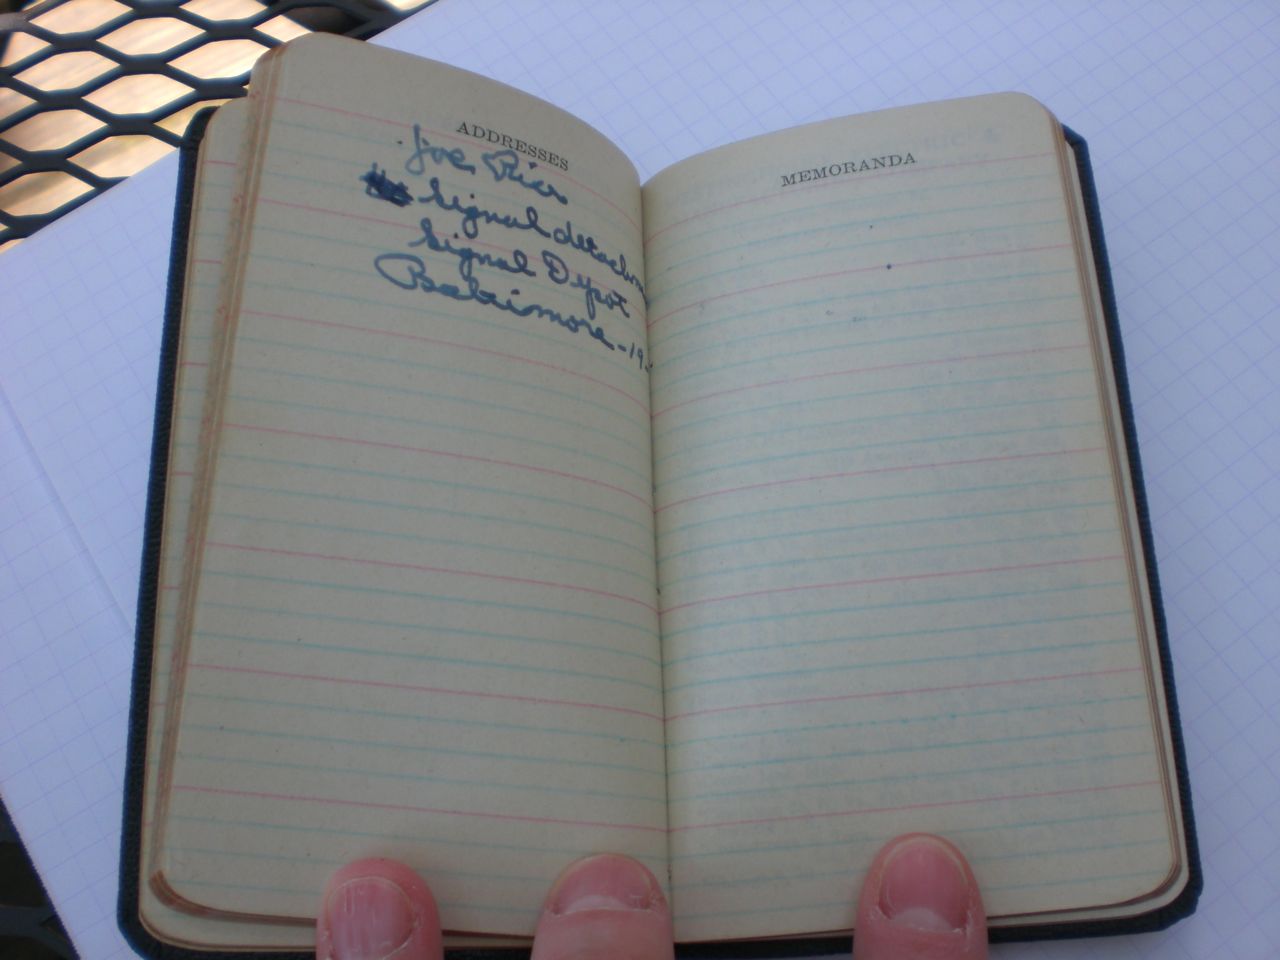 ADDRESSES
Joe
Signal
Signal Depot
Baltimore - 19
MEMORANDA